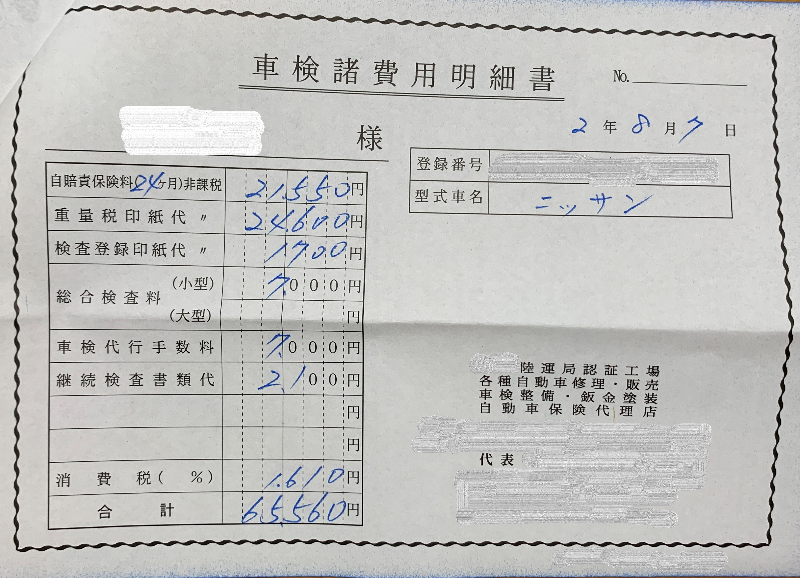 車検諸費用明細書
No.
様
2年8月7日
登録番号
型式車名 ニッサン
自賠責保険料(24ヶ月)非課税 21,550円
重量税印紙代 〃 24,600円
検査登録印紙代 〃 1700円
総合検査料 (小型) 7,000円
(大型) 円
車検代行手数料 7,000円
継続検査書類代 2,100円
円
円
消費税( %) 1,610円
合計 65,560円
陸運局認証工場
各種自動車修理・販売
車検整備・鈑金塗装
自動車保険代理店
代表